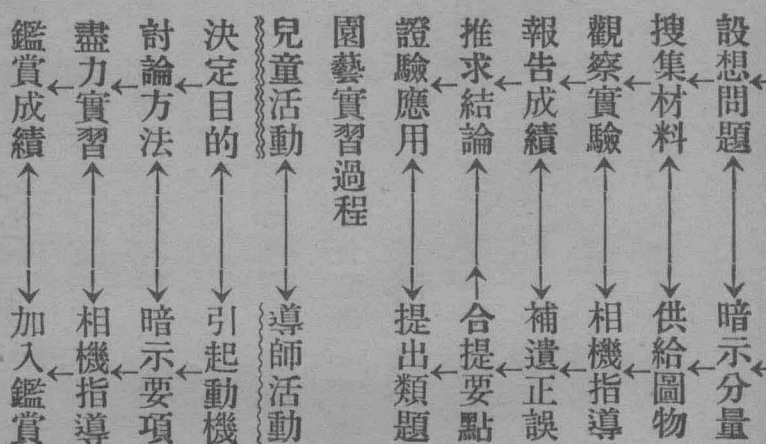 設想問題 暗示分量
搜集材料 供給圖物
觀察實驗 相機指導
報告成績 補遺正誤
推求結論 合提要點
證驗應用 提出類題
園藝實習過程
兒童活動 導師活動
決定目的 引起動機
討論方法 暗示要項
盡力實習 相機指導
鑑賞成績 加入鑑賞